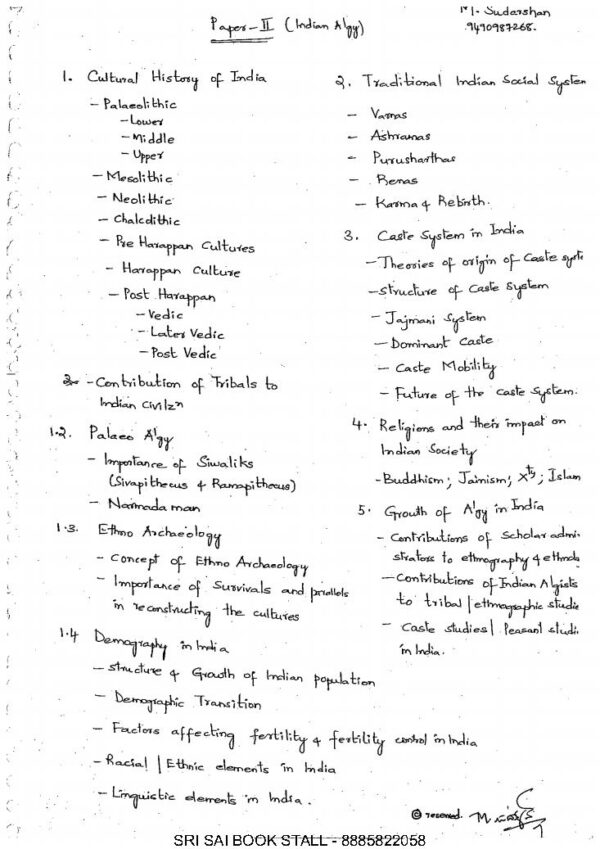 Paper-II (Indian A'gy)
M. Sudarshan
9490987268.
1. Cultural History of India
- Palaeolithic
- Lower
- Middle
- Upper
- Mesolithic
- Neolithic
- Chalcolithic
- Pre Harappan Cultures
- Harappan Culture
- Post Harappan
- Vedic
- Later Vedic
- Post Vedic
- Contribution of Tribals to
Indian Civilzn
1.2. Palaeo A'gy
- Importance of Siwaliks
(Sivapithecus & Ramapithecus)
- Narmada man
1.3. Ethno Archaeology
- Concept of Ethno Archaeology
- Importance of Survivals and prlallels
in reconstructing the cultures
1.4 Demography in India
- Structure & Growth of Indian population
- Demographic Transition
- Factors affecting fertility & fertility control in India
- Racial | Ethnic elements in India
- Linguistic elements in India.
2. Traditional Indian Social System
- Varnas
- Ashramas
- Purusharthas
- Renas
- Karma & Rebirth.
3. Caste System in India
- Theories of origin of Caste syste
- structure of Caste System
- Jajmani System
- Dominant Caste
- Caste Mobility
- Future of the caste System.
4. Religions and their impact on
Indian Society
- Buddhism; Jainism; Xty; Islam
5. Growth of A'gy in India
- Contributions of Scholar admi-
strators to ethnography & ethnolo
- Contributions of Indian A'gists
to tribal | ethnographic studie
- Caste studies | Peasant studi
in India.
© reserved.
SRI SAI BOOK STALL - 8885822058